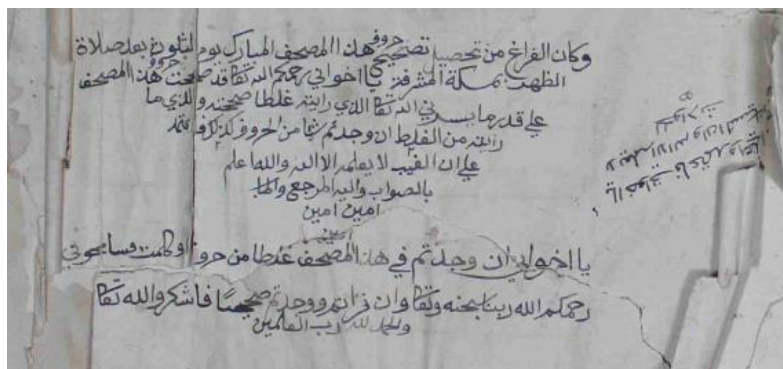 وكان الفراغ من تحصيل تصحيح حروف هذا المصحف المبارك يوم بعد صلاة
الظهر بمكة المشرفة يا اخواني رحمكم الله تعا قد صححت حروف هذا المصحف
علي قدر ما يسر لي الله تعا الذي رايته غلطا صححته والذي ما
رايته من الغلط ان وجدتم شيا من الحروف
علي ان الغيب لا يعلمه الا الله والله اعلم
بالصواب واليه المرجع والماب
امين امين
امين
يا اخواني ان وجدتم في هذا المصحف غلطا من حروف او كلمت فسامحوني
رحمكم الله ربنا سبحنه وتعا وان قراتم ووجدتم صحيحا فاشكروا الله تعا
والحمد لله رب العالمين